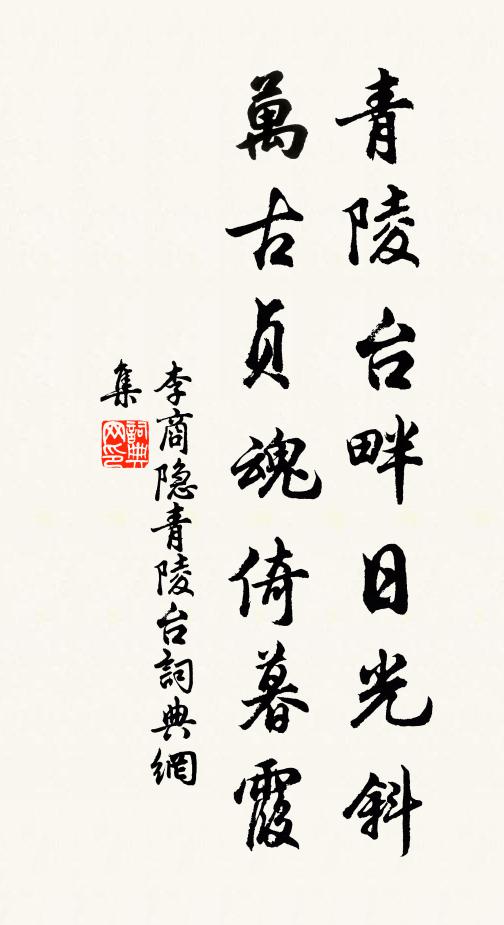 青陵台畔日光斜
萬古貞魂倚暮霞
李商隐青陵台詞典網
集
詞典网印